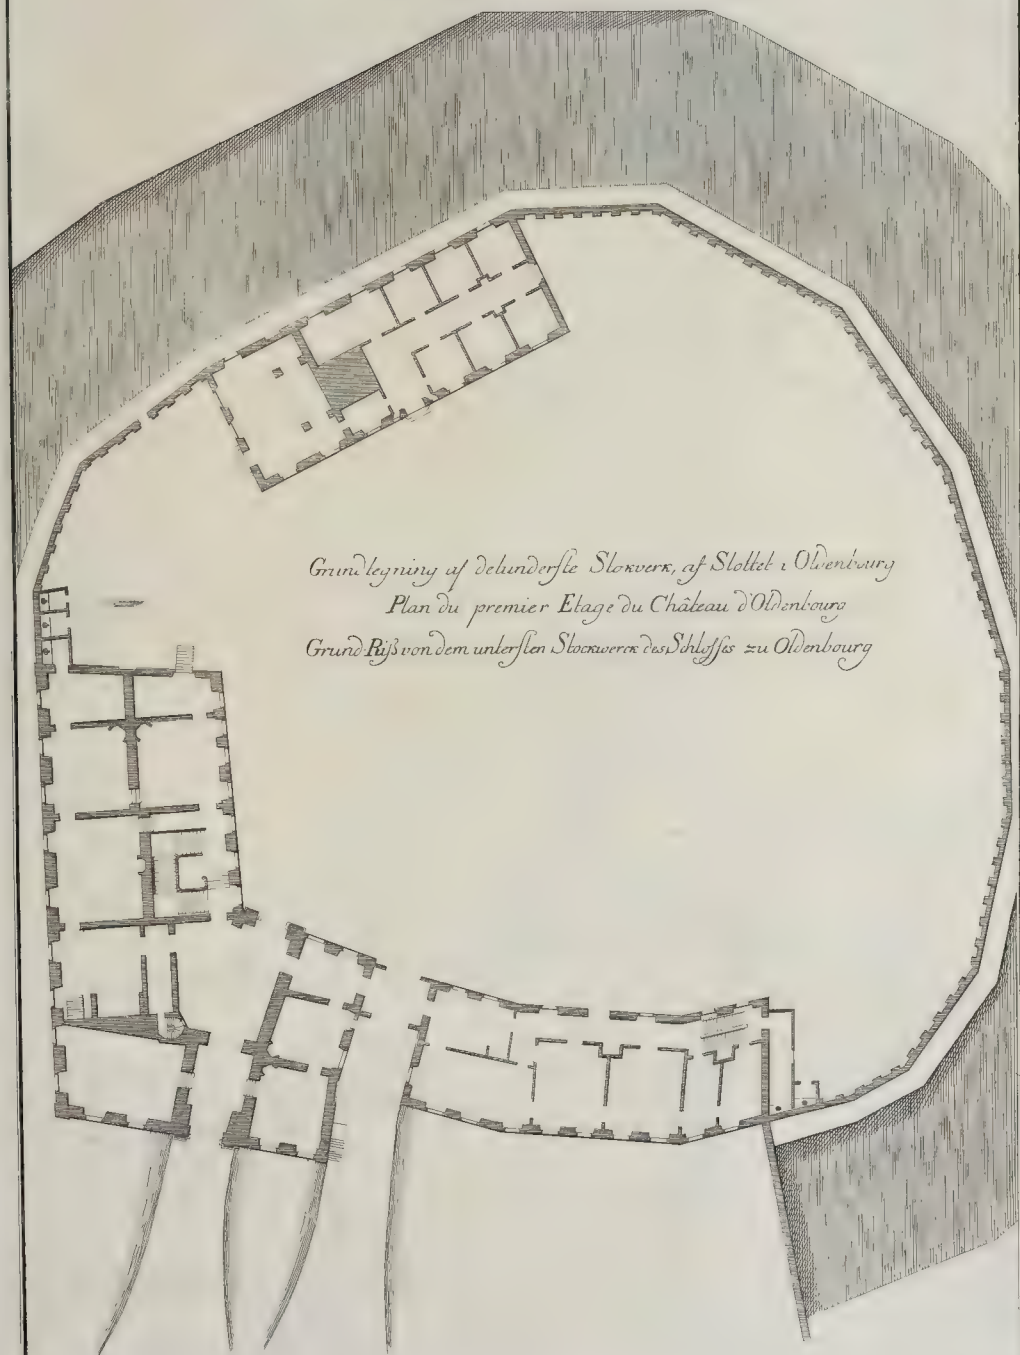 Grundlegning af detunderste Stokverk, af Slottet i Oldenbourg
Plan du premier Etage du Château d'Oldenbourg
Grund-Riß von dem untersten Stockwerck des Schlosses zu Oldenbourg